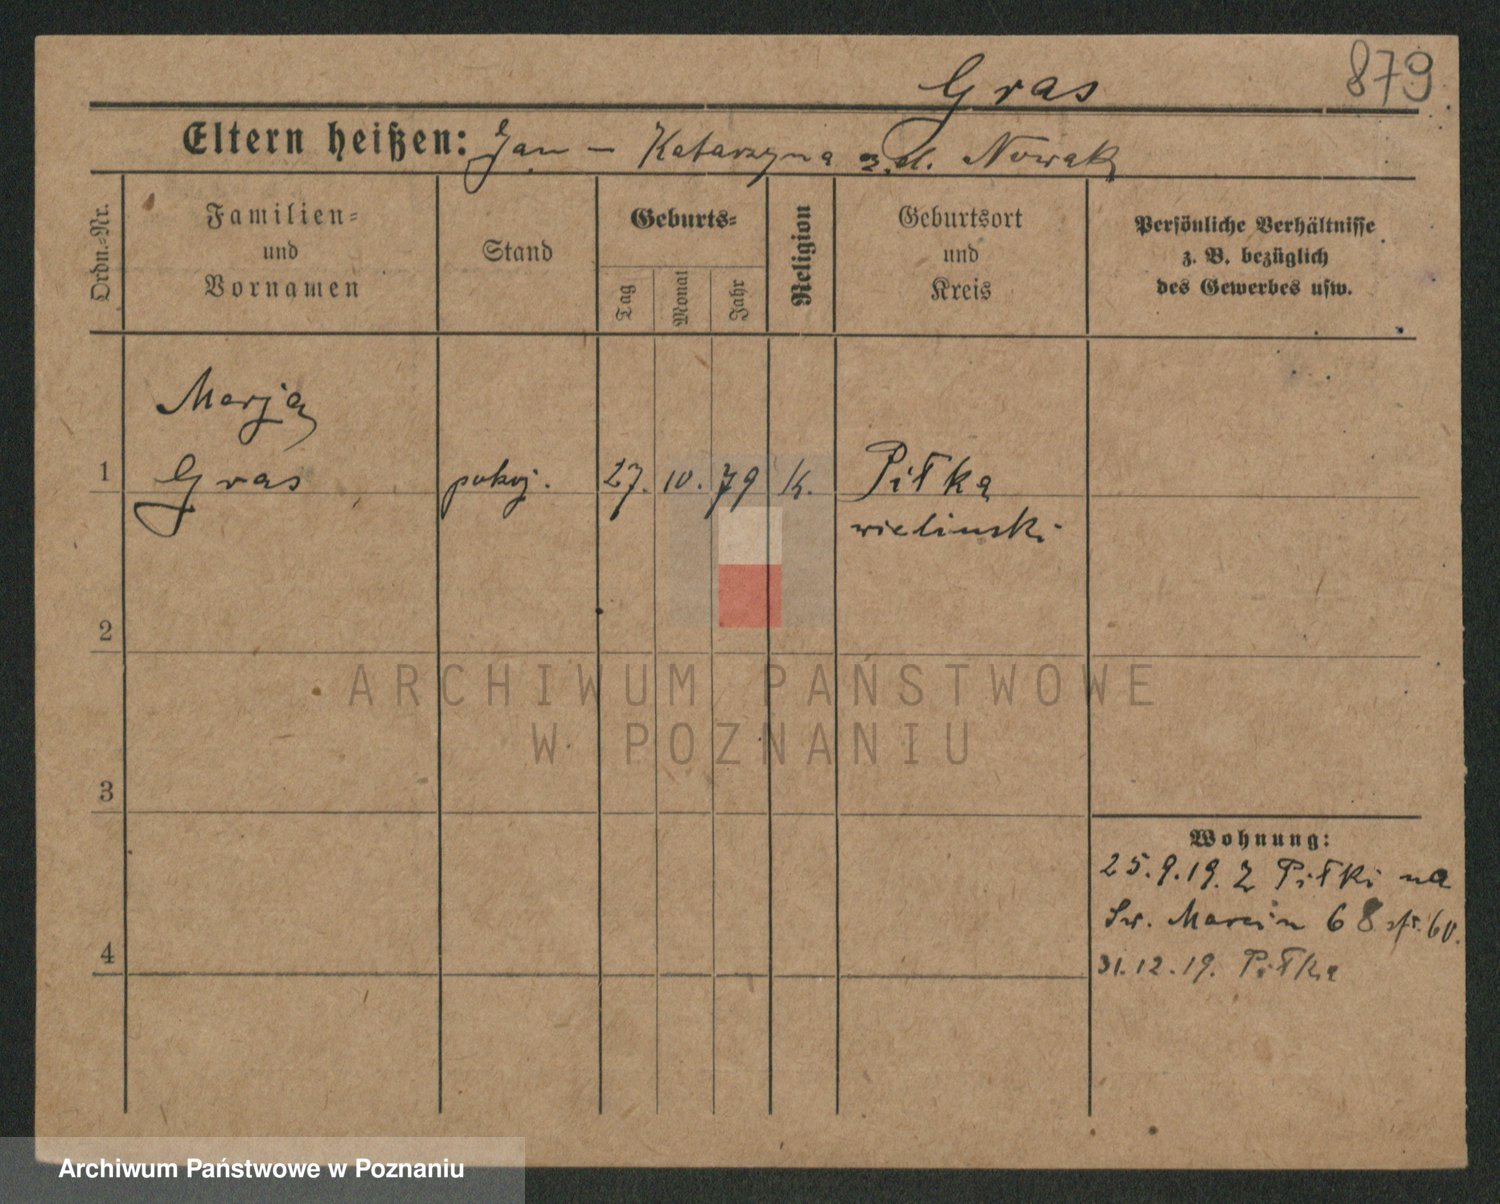 Gras
879
Eltern heißen: Jan – Katarzyna z d. Nowak
Ordn.-Nr.
Familien-
und
Vornamen
Stand
Geburts-
Tag
Monat
Jahr
Religion
Geburtsort
und
Kreis
Persönliche Verhältnisse
z. B. bezüglich
des Gewerbes usw.
Marja
1 Gras pokoj. 27. 10. 79 k. Piłka
wielinski
2
3
4
Wohnung:
25.9.19. Z Piłki na
Św. Marcin 68 60.
31.12.19. Piłka
ARCHIWUM PAŃSTWOWE
W POZNANIU
Archiwum Państwowe w Poznaniu